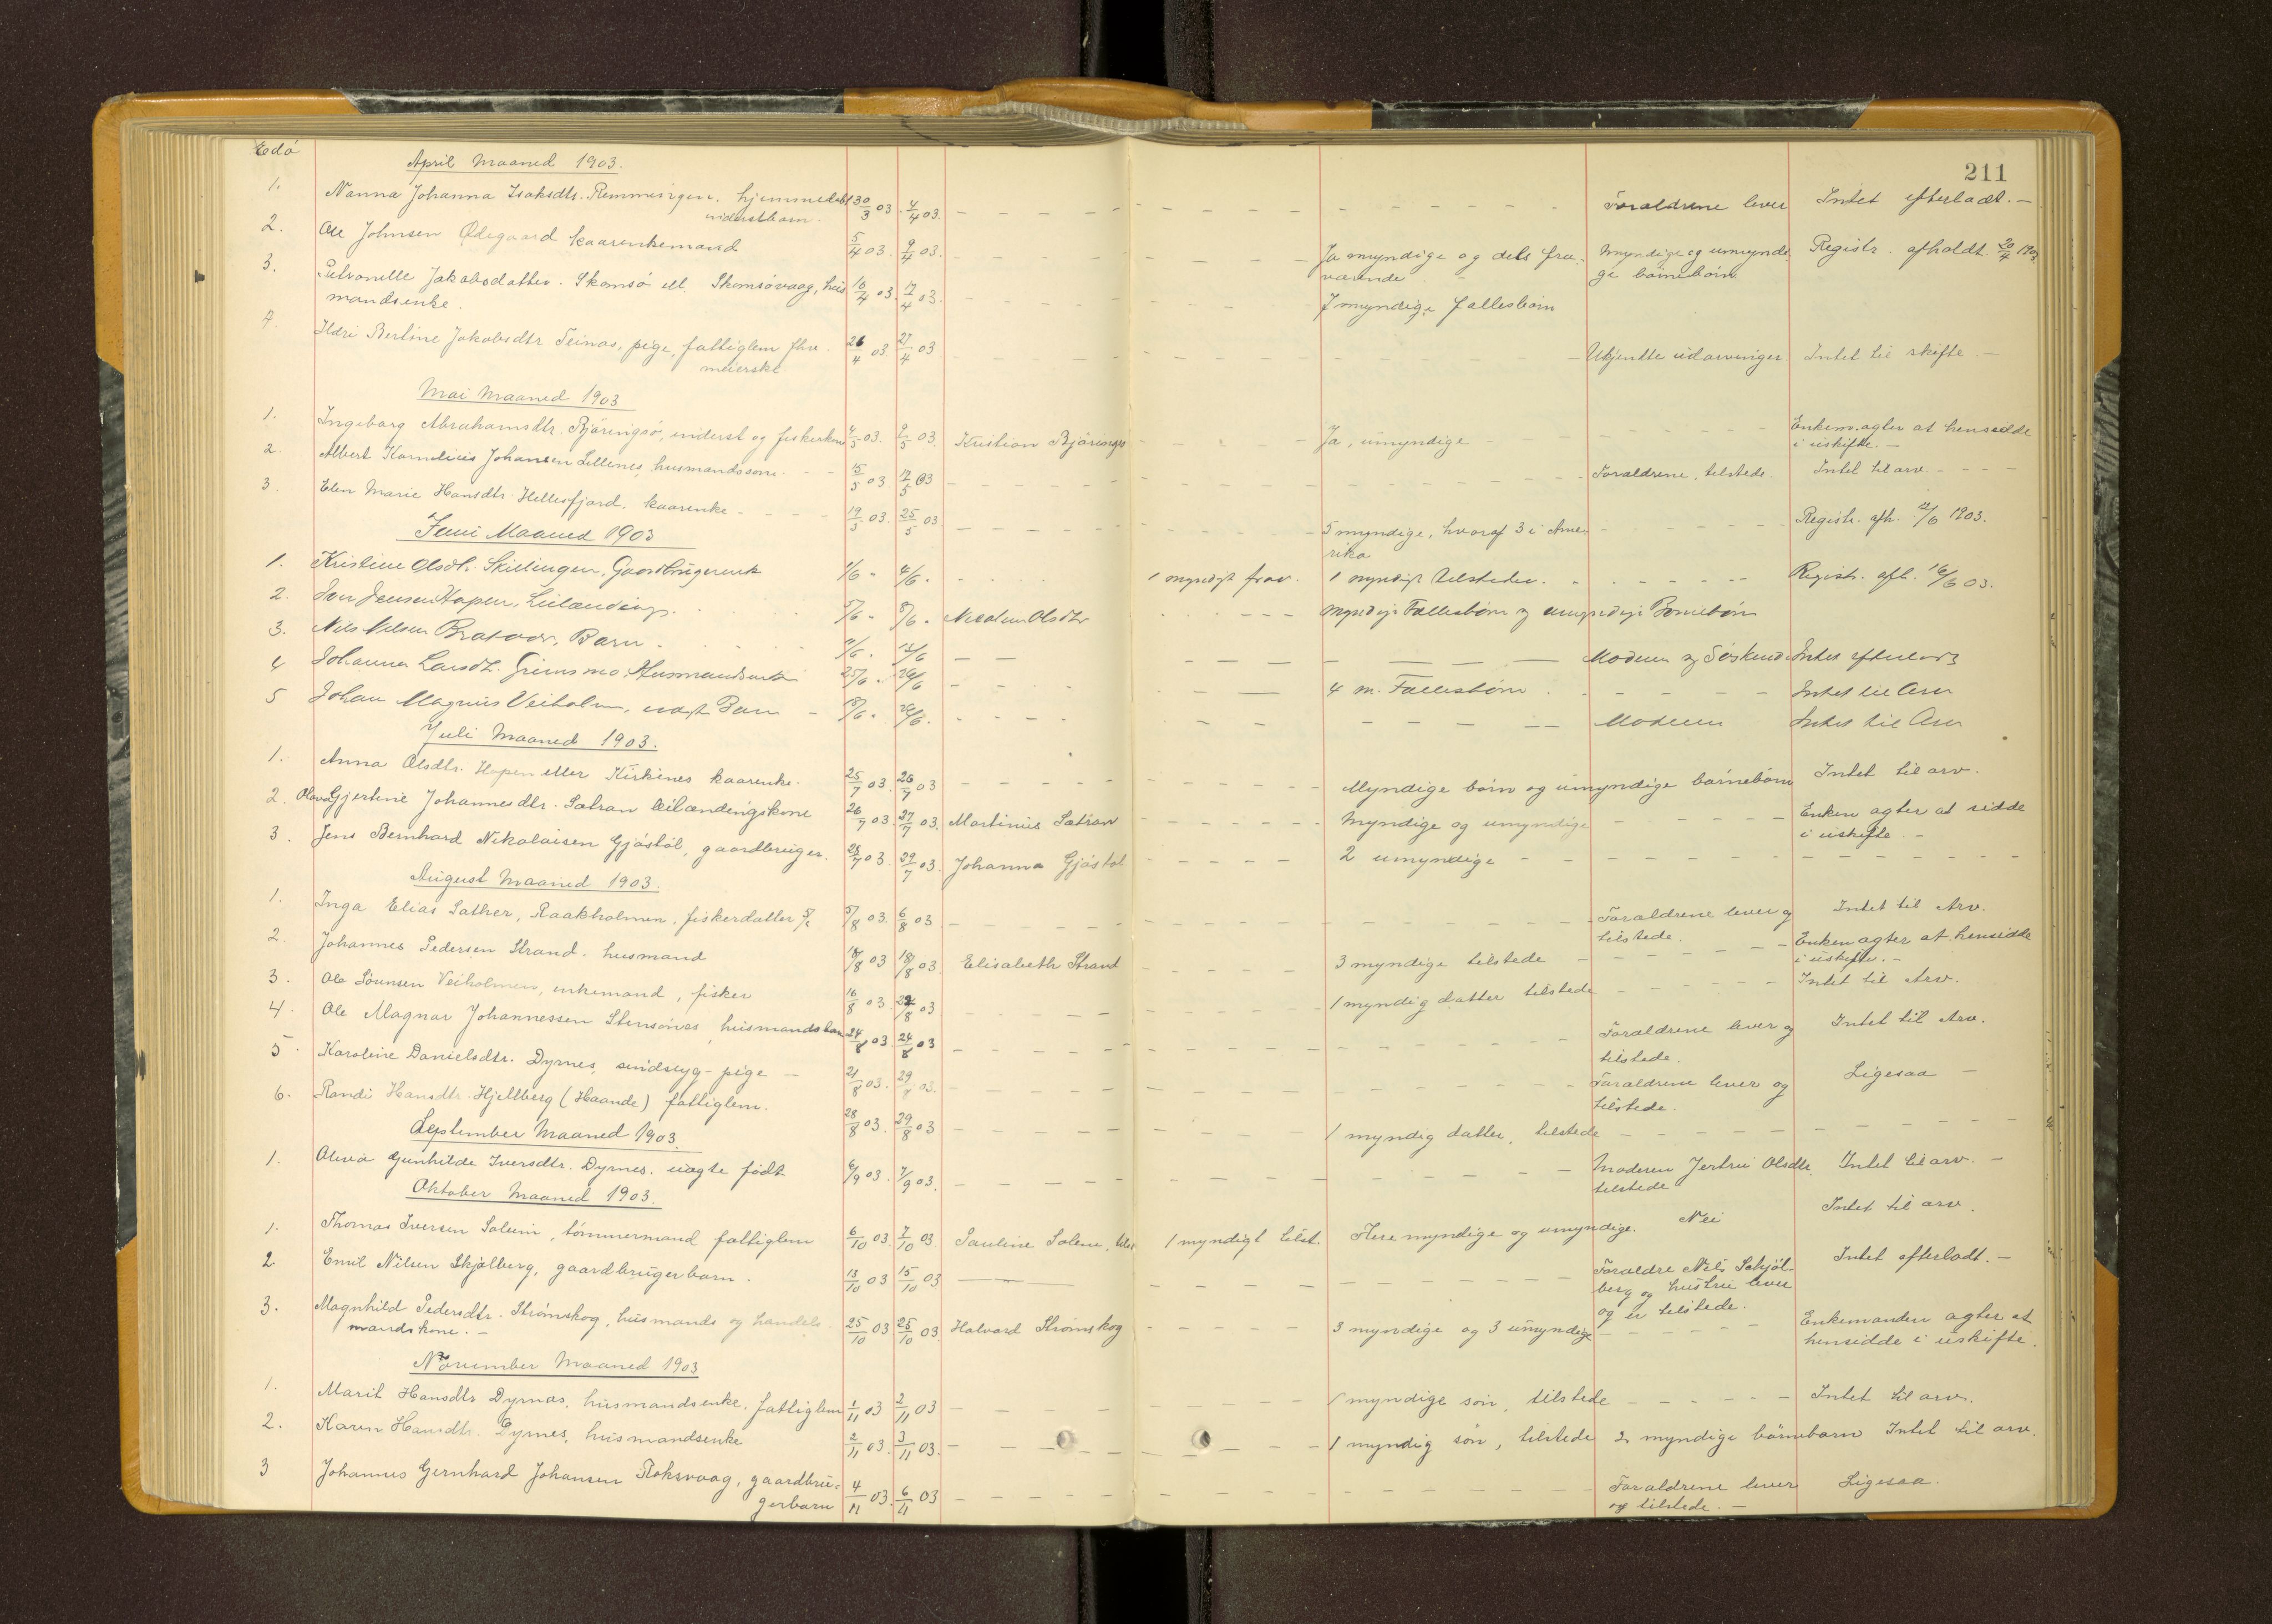 Edö
211
April Maaned 1903.
1. Nanna Johanna Isaksdtr. Remmingen, hjemmedøbt 30/3 03. 4/4 03. Forældrene lever Intet efterladt. —
inderstbarn.
2. Ole Johnsen Ødegaard kaarenkemand 5/4 03. 9/4 03. Ja myndige og dels fra- Myndige og umyndi- Registr. afholdt 20/4 1903
værende ge börnebörn
3. Petronelle Jakobsdatter. Skomsö ell. Skomsövaag, hus 16/4 03. 17/4 03. 7 myndige fællesbörn
mandsenke.
4. Ildri Berline Jakobsdtr Teinæs, pige, fattiglem fhv. 26/4 03. 27/4 03 Ukjendte udarvinger Intet til skifte. —
meierske
Mai Maaned 1903
1. Ingeborg Abrahamsdtr. Bjäringsö, inderst og fiskerkone 4/5 03. 9/5 03. Kristian Bjäringsö Ja, umyndige Enkem. agter at hensidde
i uskifte. —
2. Albert Kornelius Johansen Lillenes, husmandssøn 15/5 03 17/5 03 Forældrene, tilstede. Intet til arv.
3. Elen Marie Hansdtr. Hellesfjord, kaarenke 19/5 03. 25/5 03 5 myndige, hvoraf 3 i Ame- Registr. afh. 22/6 1903.
rika
Juni Maaned 1903
1. Kristine Olsdtr. Skillingen, Gaardbrugerenke 1/6 - 4/6 - 1 myndigt frav. 1 myndigt tilstede. Registr. afh. 16/6 03.
2. Iver Jensen Hopen, Leilænding. 5/6 - 8/6 - Nicoline Olsdtr myndige Fællesbörn og umyndige Børnebörn
3. Nils Nilsen Bratvær, Barn 9/6 - 12/6 Moderen og Söskende Intet efterladt
4 Johanna Larsdtr. Grimsmo, Husmandsenke 25/6 - 26/6 4 m. Fællesbörn Intet til Arv
5 Johan Magnus Veiholm, uægte Barn 18/6 - 26/6 - Moderen Intet til Arv
Juli Maaned 1903.
1. Anna Olsdtr. Hopen eller Kirkenes kaarenke. 25/7 03 26/7 03 Myndige börn og umyndige barnebörn Intet til arv.
2. Olava Gjertine Johannesdtr. Sætran leilændingskone 26/7 03 27/7 03. Martinus Sætran Myndige og umyndige Enken agter at sidde
i uskifte. —
3. Jens Bernhard Nikolaisen Gjöstöl, gaardbruger. 28/7 03. 29/7 03. Johanna Gjöstöl 2 umyndige
August Maaned 1903.
1. Inga Elias Sæther, Raakholmen, fiskerdatter 5/8 03. 6/8 03 Forældrene lever og Intet til Arv.
tilstede.
2. Johannes Pedersen Strand, husmand 18/8 03. Elisabeth Strand 3 myndige tilstede Enken agter at hensidde
i uskifte. —
3. Ole Sörensen Veiholmen, enkemand, fisker 16/8 03 1 myndig datter tilstede Intet til Arv.
4. Ole Magnar Johannessen Stensönes, husmandsbarn 24/8 03 24/8 03 Forældrene lever og Intet til Arv.
tilstede.
5 Karoline Danielsdtr. Dyrnes, sindssyg-pige 21/8 03. 29/8 03. Forældrene lever og Ligesaa —
tilstede.
6. Randi Hansdtr. Hjellberg (Haande) fattiglem. 28/8 03. 29/8 03 1 myndig datter, tilstede
September Maaned 1903
1. Oliva Gunhilde Iversdtr. Dyrnes, uægte födt 6/9 03. 7/9 03. Moderen Jertru Olsdtr. Intet til arv. —
tilstede
Oktober Maaned 1903.
1. Thomas Iversen Solem, tömmermand fattiglem 6/10 03. 7/10 03 Pauline Solem, tilst 1 myndigt tilst. Flere myndige og umyndige. Nei Intet til arv.
2 Emil Nilsen Skjölberg, gaardbrugerbarn. 13/10 03 15/10 03. Forældre Nils Schjöl- Intet efterladt. —
berg og hustru lever
og er tilstede.
3. Magnhild Pedersdtr. Strömskog, husmands og handels- 25/10 03 25/10 03. Halvard Strömskog 3 myndige og 3 umyndige Enkemanden agter at
mandskone. — hensidde i uskifte.
November Maaned 1903
1. Marit Hansdtr Dyrnæs, husmandsenke, fattiglem 1/11 03 2/11 03 1 myndige sön, tilstede Intet til arv.
2. Karen Hansdtr. Dyrnes, husmandsenke 2/11 03. 3/11 03. 1 myndig sön, tilstede 2 myndige börnebarn Intet til arv.
3 Johannes Gernhard Johansen Roksvaag, gaardbru- 4/11 03. 6/11 03 Forældrene lever Ligesaa.
gerbarn og tilstede. —